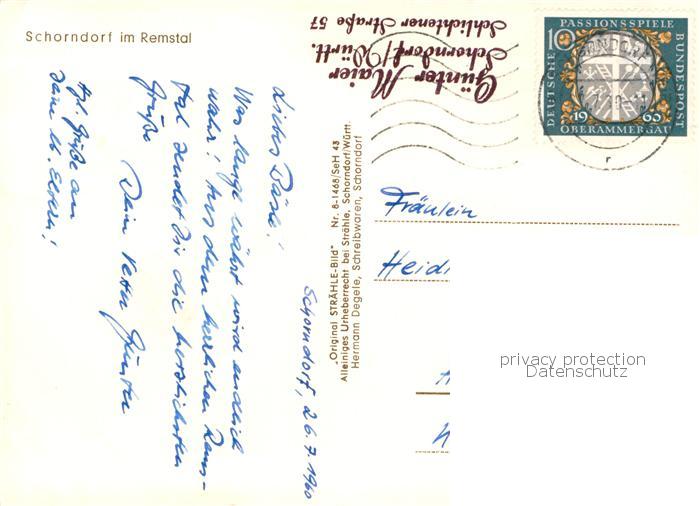 Schorndorf im Remstal
Günter Maier
Schorndorf/Württ.
Schlichtener Straße 57
DEUTSCHE BUNDESPOST
PASSIONSSPIELE
10
1960
OBERAMMERGAU
Schorndorf, 26.7.1960
Liebes Bäsle!
Was lange währt wird endlich
wahr! Aus dem herrlichen Rems-
tal sendet Dir die herzlichsten
Grüße
Dein Vetter Günter
Hzl. Grüße an
Deine lb. Eltern!
„Original STRÄHLE-Bild" Nr. 8-1468/SeH 43
Alleiniges Urheberrecht bei Strähle, Schorndorf/Württ.
Hermann Degele, Schreibwaren, Schorndorf
Fräulein
Heidi
privacy protection
Datenschutz